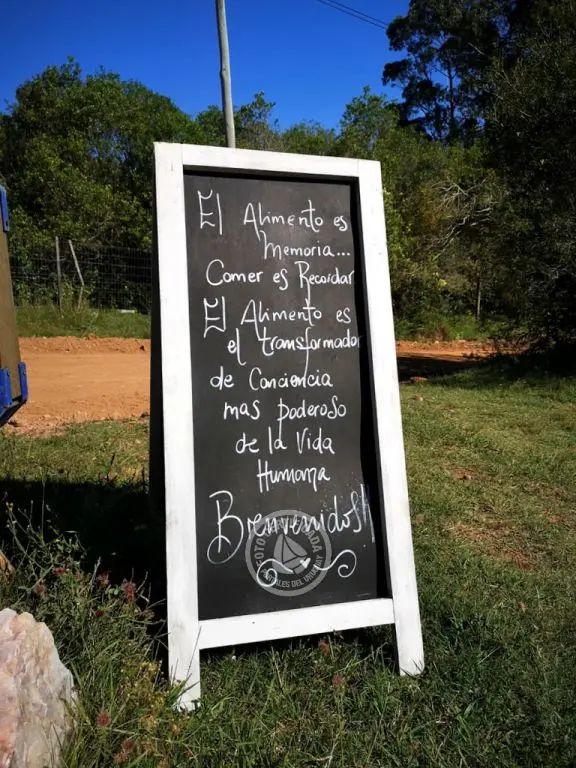 El Alimento es
Memoria...
Comer es Recordar
El Alimento es
el transformador
de Conciencia
mas poderoso
de la Vida
Humana
Bienvenidos!!